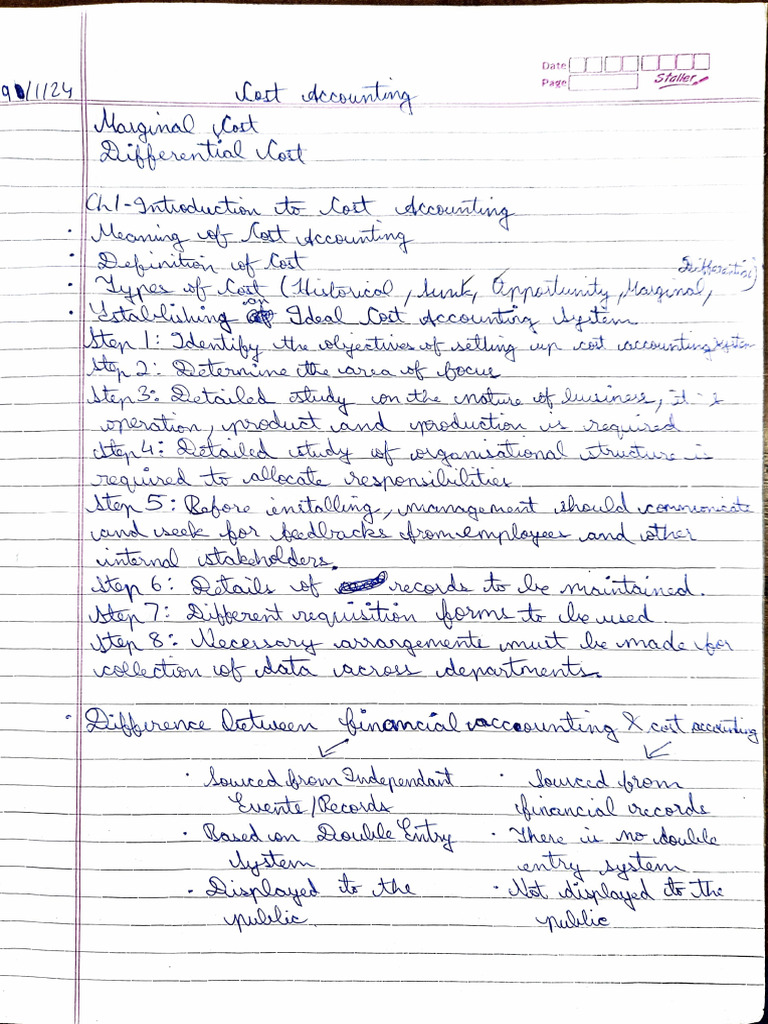 Date
Page
Staller
/1/24
Cost Accounting
Marginal Cost
Differential Cost
Ch1-Introduction to Cost Accounting
• Meaning of Cost Accounting
• Definition of Cost
• Types of Cost (Historical, Sunk, Opportunity, Marginal, Differential)
• Establishing an Ideal Cost Accounting System
Step 1: Identify the objectives of setting up cost accounting system
Step 2: Determine the area of focus
Step 3: Detailed study on the nature of business, it's
operation, product and production is required
Step 4: Detailed study of organisational structure is
required to allocate responsibilities
Step 5: Before installing, management should communicate
and seek for feedbacks from employees and other
internal stakeholders.
Step 6: Details of records to be maintained.
Step 7: Different requisition forms to be used.
Step 8: Necessary arrangements must be made for
collection of data across departments.
• Difference between financial accounting & cost accounting
• Sourced from Independant
Events/Records
• Based on Double Entry
System
• Displayed to the
public.
• Sourced from
financial records
• There is no double
entry system
• Not displayed to the
public